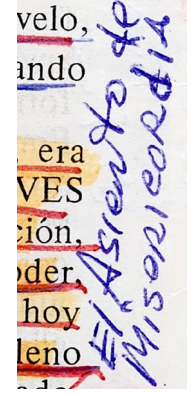 velo,
ando
era
VES
ción,
oder,
hoy
leno
El Asiento de
Misericordia